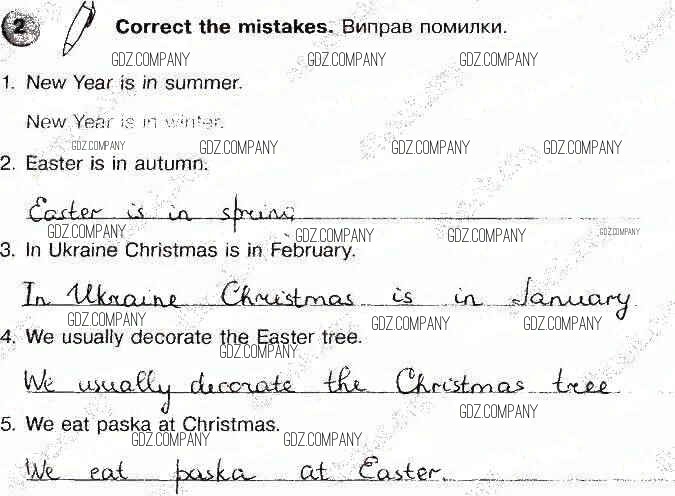 2 Correct the mistakes. Виправ помилки.
GDZ.COMPANY GDZ.COMPANY GDZ.COMPANY
1. New Year is in summer.
New Year is in winter.
GDZ.COMPANY GDZ.COMPANY GDZ.COMPANY GDZ.COMPANY
2. Easter is in autumn.
Easter is in spring
GDZ.COMPANY GDZ.COMPANY GDZ.COMPANY GDZ.COMPANY
3. In Ukraine Christmas is in February.
In Ukraine Christmas is in January
GDZ.COMPANY GDZ.COMPANY GDZ.COMPANY
4. We usually decorate the Easter tree.
GDZ.COMPANY
We usually decorate the Christmas tree
GDZ.COMPANY
5. We eat paska at Christmas.
GDZ.COMPANY GDZ.COMPANY
We eat paska at Easter.